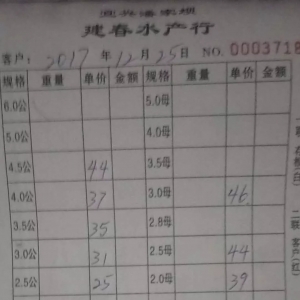 建春水产行
客户: 2017年12月25日 NO. 0003718
规格 重量 单价 金额 规格 重量 单价 金额
6.0公 5.0母
5.0公 4.0母
4.5公 44 3.5母
4.0公 37 3.0母 46
3.5公 35 2.8母
3.0公 31 2.5母 44
2.5公 25 2.0母 39